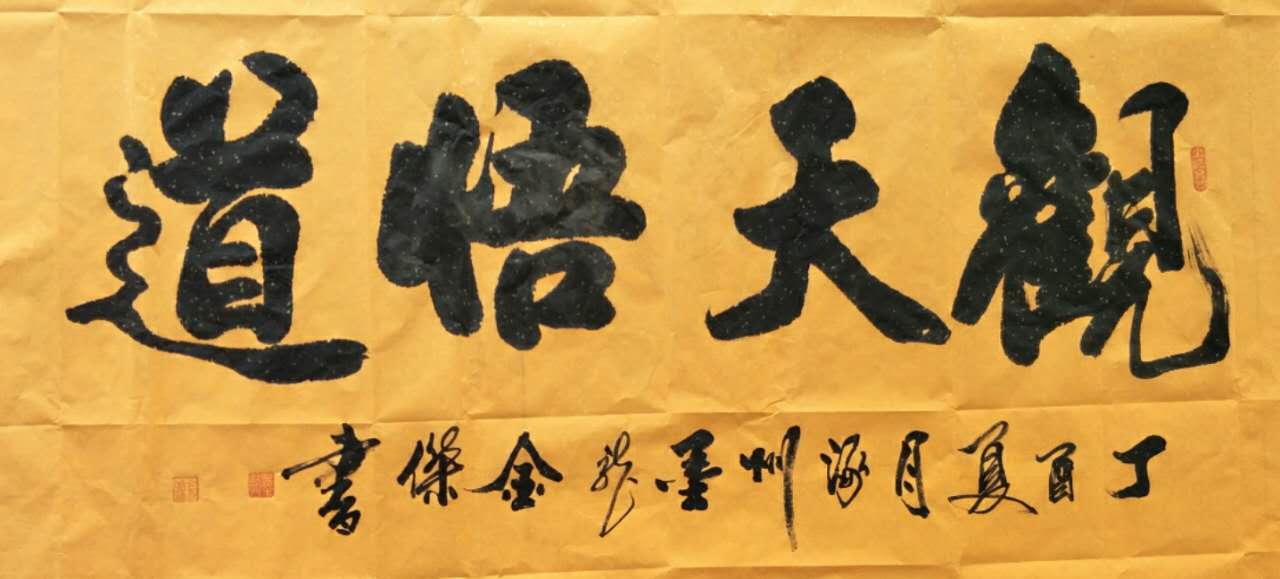 觀天悟道
丁酉夏月涿州墨龙金傑書